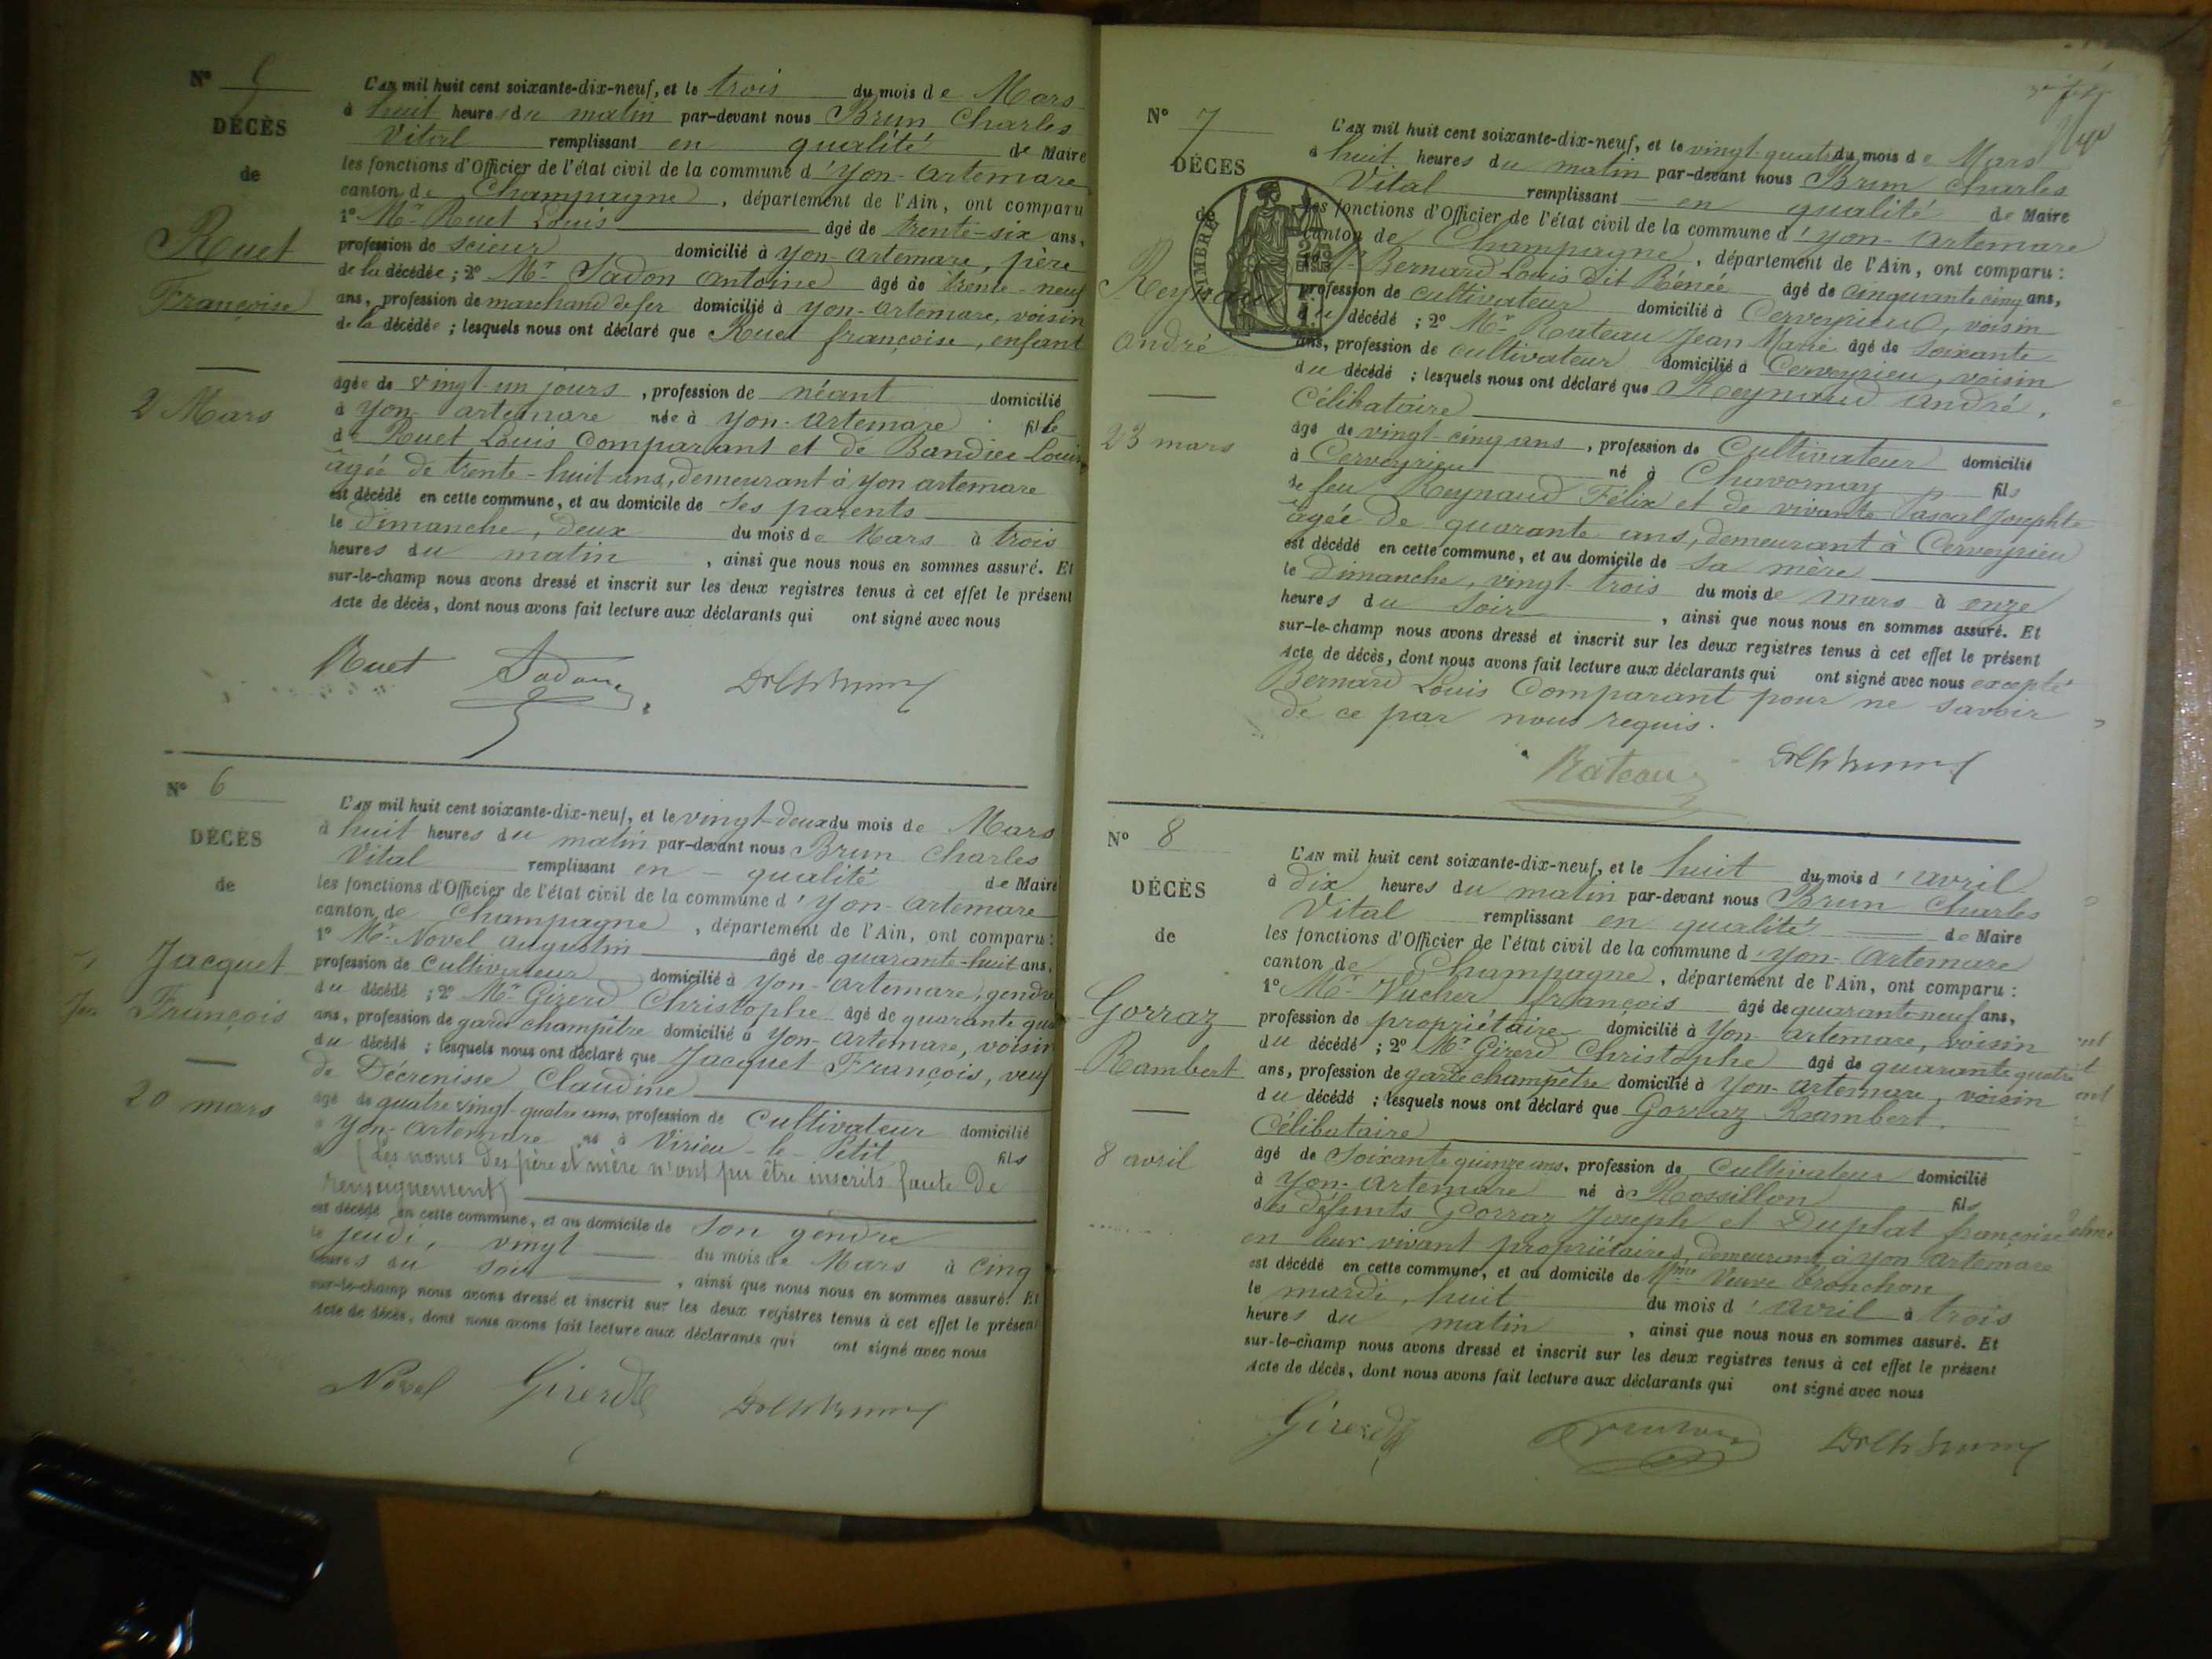 N° 5
DÉCÈS
de
Ruet
Françoise
2 Mars
L'AN mil huit cent soixante-dix-neuf, et le trois du mois de Mars
à huit heures du matin par-devant nous Brun Charles
Vital remplissant en qualité de Maire
les fonctions d'Officier de l'état civil de la commune d'Yon-Artemare
canton de Champagne, département de l'Ain, ont comparu
1° Mr Ruet Louis âgé de trente-six ans,
profession de scieur domicilié à Yon-Artemare, père
de la décédée; 2° Mr Sadon Antoine âgé de trente-neuf
ans, profession de marchand de fer domicilié à Yon-Artemare, voisin
de la décédée; lesquels nous ont déclaré que Ruet françoise, enfant
âgée de vingt-un jours, profession de néant domicilié
à Yon-artemare née à Yon-Artemare fille
de Ruet Louis Comparant et de
âgée de trente-huit ans, demeurant à Yon artemare
est décédé en cette commune, et au domicile de ses parents
le dimanche, deux du mois de Mars à trois
heures du matin, ainsi que nous nous en sommes assuré. Et
sur-le-champ nous avons dressé et inscrit sur les deux registres tenus à cet effet le présent
Acte de décès, dont nous avons fait lecture aux déclarants qui ont signé avec nous
Ruet Sadon DrChBrun
N° 6
DÉCÈS
de
Jacquet
François
20 mars
L'AN mil huit cent soixante-dix-neuf, et le vingt-deux du mois de Mars
à huit heures du matin par-devant nous Brun Charles
Vital remplissant en qualité de Maire
les fonctions d'Officier de l'état civil de la commune d'Yon-Artemare
canton de Champagne, département de l'Ain, ont comparu:
1° Mr Novel Augustin âgé de quarante-huit ans,
profession de Cultivateur domicilié à Yon-Artemare, gendre
du décédé; 2° Mr Girerd Christophe âgé de quarante qua
ans, profession de garde champêtre domicilié à Yon-Artemare, voisin
du décédé; lesquels nous ont déclaré que Jacquet François, veuf
de Décrenisse Claudine
âgé de quatre vingt-quatre ans, profession de Cultivateur domicilié
à Yon-Artemare né à Virieu-le-Petit fils
(les noms des père et mère n'ont pu être inscrits faute de
renseignement)
est décédé en cette commune, et au domicile de son gendre
le jeudi, vingt du mois de Mars à Cinq
heures du soir, ainsi que nous nous en sommes assuré. Et
sur-le-champ nous avons dressé et inscrit sur les deux registres tenus à cet effet le présent
Acte de décès, dont nous avons fait lecture aux déclarants qui ont signé avec nous
Novel Girerd DrChBrun
N° 7
DÉCÈS
de
TIMBRE
Reynaud
André
23 mars
L'AN mil huit cent soixante-dix-neuf, et le vingt-quatre du mois de Mars
à huit heures du matin par-devant nous Brun Charles
Vital remplissant en qualité de Maire
les fonctions d'Officier de l'état civil de la commune d'Yon-Artemare
canton de Champagne, département de l'Ain, ont comparu:
1° Mr Bernard Louis dit Rénée âgé de cinquante cinq ans,
profession de cultivateur domicilié à Cerveyrieu, voisin
du décédé; 2° Mr Rateau Jean Marie âgé de soixante
ans, profession de cultivateur domicilié à Cerveyrieu, voisin
du décédé; lesquels nous ont déclaré que Reynaud André,
Célibataire
âgé de vingt-cinq ans, profession de Cultivateur domicilié
à Cerveyrieu né à Chavornay fils
de feu Reynaud Félix et de vivante Pascal Josephte
âgée de quarante ans, demeurant à Cerveyrieu
est décédé en cette commune, et au domicile de sa mère
le Dimanche, vingt-trois du mois de mars à onze
heures du soir, ainsi que nous nous en sommes assuré. Et
sur-le-champ nous avons dressé et inscrit sur les deux registres tenus à cet effet le présent
Acte de décès, dont nous avons fait lecture aux déclarants qui ont signé avec nous excepté
Bernard Louis Comparant pour ne savoir
de ce par nous requis.
Rateau DrChBrun
N° 8
DÉCÈS
de
Gorraz
Rambert
8 avril
L'AN mil huit cent soixante-dix-neuf, et le huit du mois d'avril
à dix heures du matin par-devant nous Brun Charles
Vital remplissant en qualité de Maire
les fonctions d'Officier de l'état civil de la commune d'Yon-Artemare
canton de Champagne, département de l'Ain, ont comparu:
1° Mr Vucher françois âgé de quarante neuf ans,
profession de propriétaire domicilié à Yon-artemare, voisin
du décédé; 2° Mr Girerd Christophe âgé de quarante quatre
ans, profession de garde champêtre domicilié à Yon-artemare, voisin
du décédé; lesquels nous ont déclaré que Gorraz Rambert,
Célibataire
âgé de soixante quinze ans, profession de Cultivateur domicilié
à Yon-Artemare né à Rossillon fils
des défunts Gorraz Joseph et Duplat françoise
en leur vivant propriétaires demeurant à Yon Artemare
est décédé en cette commune, et au domicile de Mme Veuve Tronchon
le mardi, huit du mois d'avril à trois
heures du matin, ainsi que nous nous en sommes assuré. Et
sur-le-champ nous avons dressé et inscrit sur les deux registres tenus à cet effet le présent
Acte de décès, dont nous avons fait lecture aux déclarants qui ont signé avec nous
Girerd DrChBrun